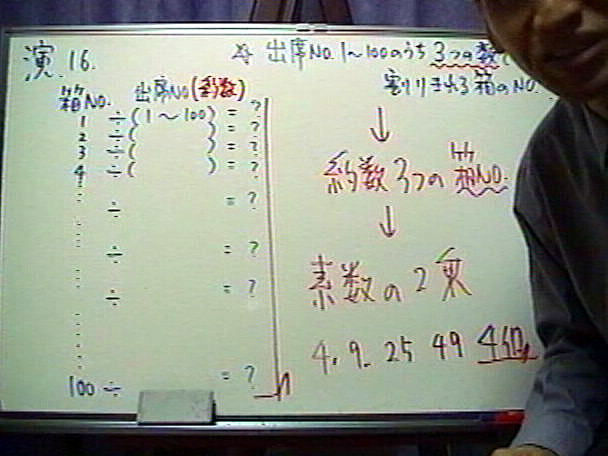 演.16.
箱NO. 出席NO(約数)
1 ÷(1〜100) = ?
2 ÷( ) = ?
3 ÷( ) = ?
4 ÷( ) = ?
÷ = ?
÷ = ?
÷ = ?
100 ÷ = ?
☆ 出席NO.1〜100のうち3つの数で
割りきれる箱のNO.
↓
約数3つの箱NO.
↓
素数の2乗
4. 9. 25 49 4個